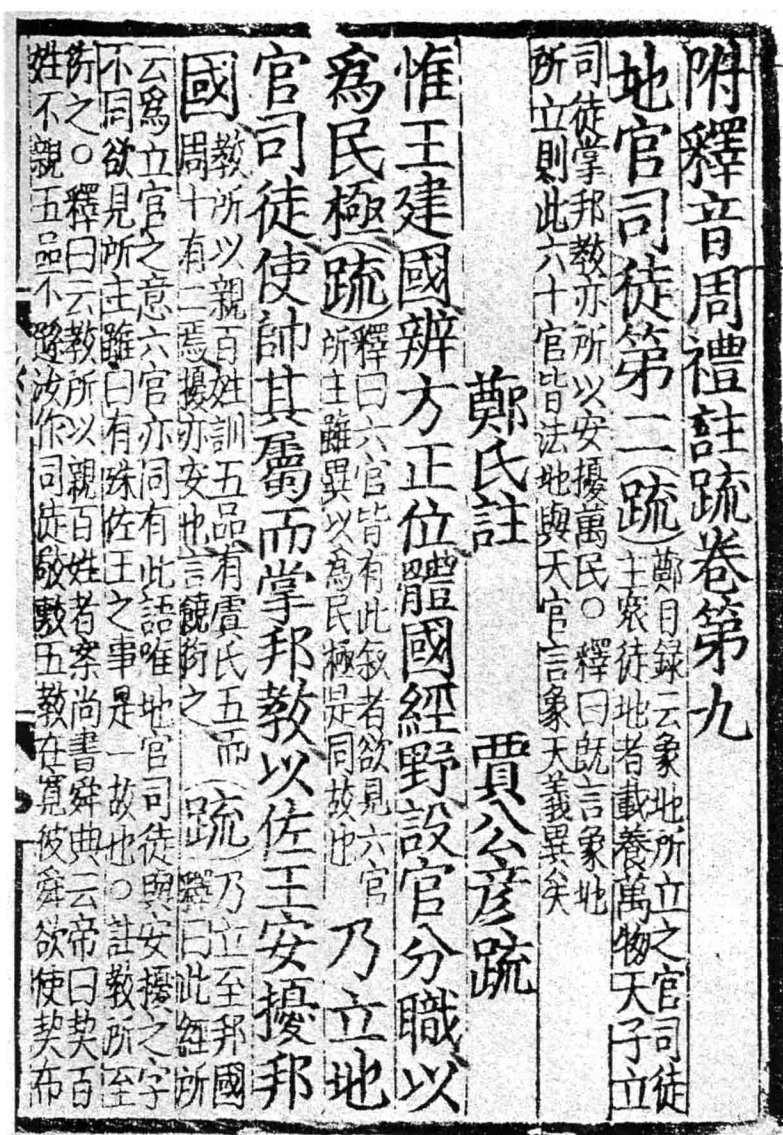 附釋音周禮註疏卷第九
地官司徒第二(疏)鄭目録云象地所立之官司徒
主衆徒地者載養萬物天子立
司徒掌邦教亦所以安擾萬民○釋曰既言象地
所立則此六十官皆法地與天官言象天義異矣
鄭氏註 賈公彦疏
惟王建國辨方正位體國經野設官分職以
爲民極(疏)釋曰六官皆有此叙者欲見六官
所主雖異以爲民極是同故也 乃立地
官司徒使帥其屬而掌邦教以佐王安擾邦
國 教所以親百姓訓五品有虞氏五而
周十有二焉擾亦安也言饒衍之(疏)乃立至邦國
釋曰此經所
云爲立官之意六官亦同有此語唯地官司徒與安擾之字
不同欲見所主雖曰有殊佐王之事是一故也○註教所至
衍之○釋曰云教所以親百姓者案尚書舜典云帝曰契百
姓不親五品不遜汝作司徒敬敷五教在寛彼舜欲使契布